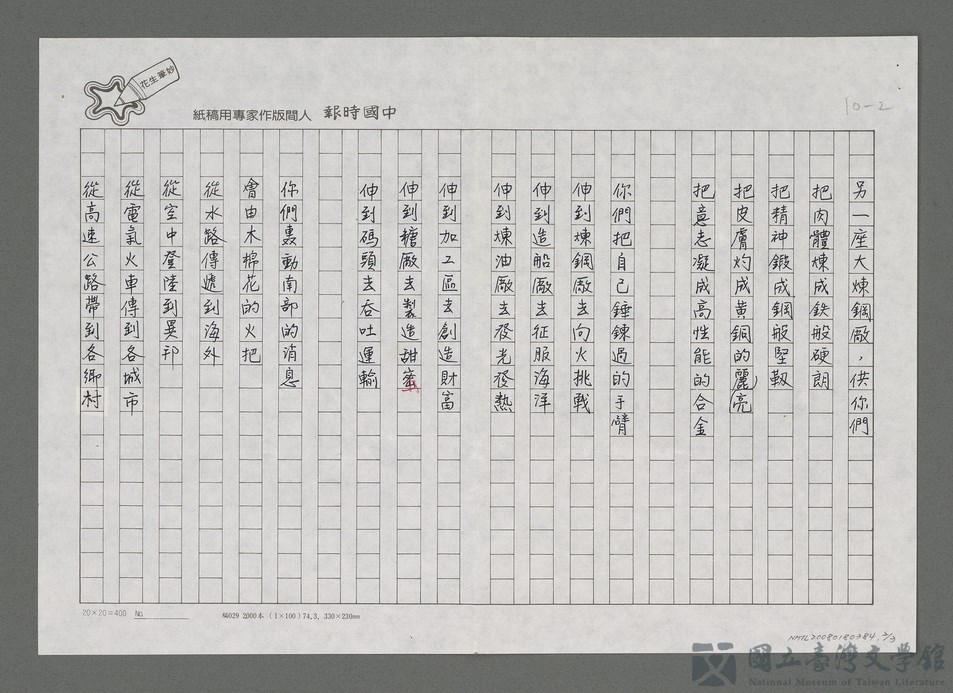 花生筆妙
紙稿用專家作版間人 報時國中
10-2
另一座大煉鋼廠，供你們
把肉體煉成鉄般硬朗
把精神鍛成鋼般堅靱
把皮膚灼成黃銅的麗亮
把意志凝成高性能的合金
你們把自己錘鍊過的手臂
伸到煉鋼廠去向火挑戰
伸到造船廠去征服海洋
伸到煉油廠去發光發熱
伸到加工區去創造財富
伸到糖廠去製造甜蜜
伸到碼頭去吞吐運輸
你們轟動南部的消息
會由木棉花的火把
從水路傳遞到海外
從空中登陸到異邦
從電氣火車傳到各城市
從高速公路帶到各鄉村
20×20=400 No.
稿029 2000本 (1×100) 74.3. 330×230mm
NMTL20080180384. 2/3
國立臺灣文學館
National Museum of Taiwan Literature